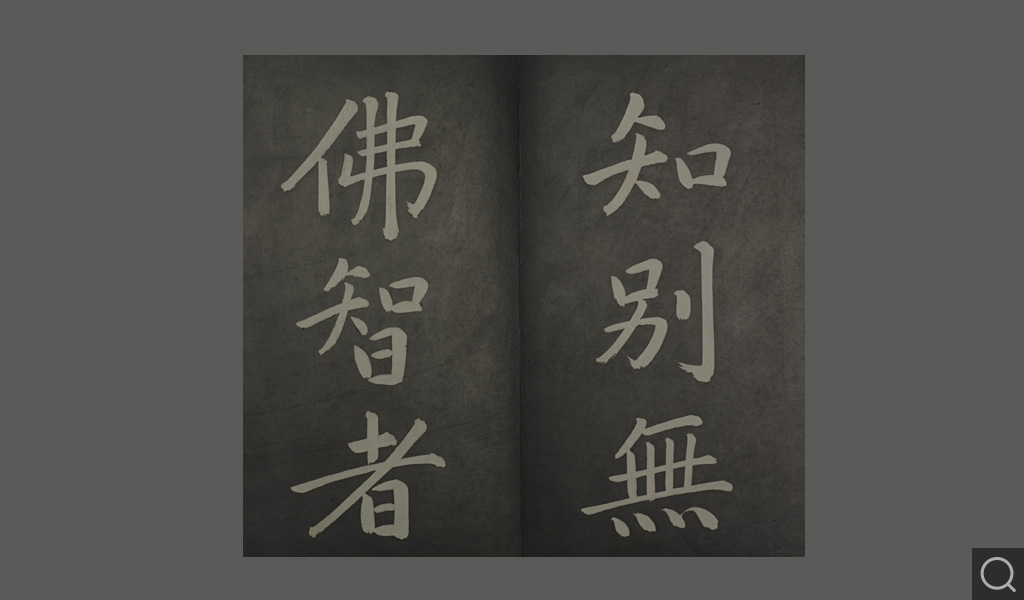 知别無
佛智者